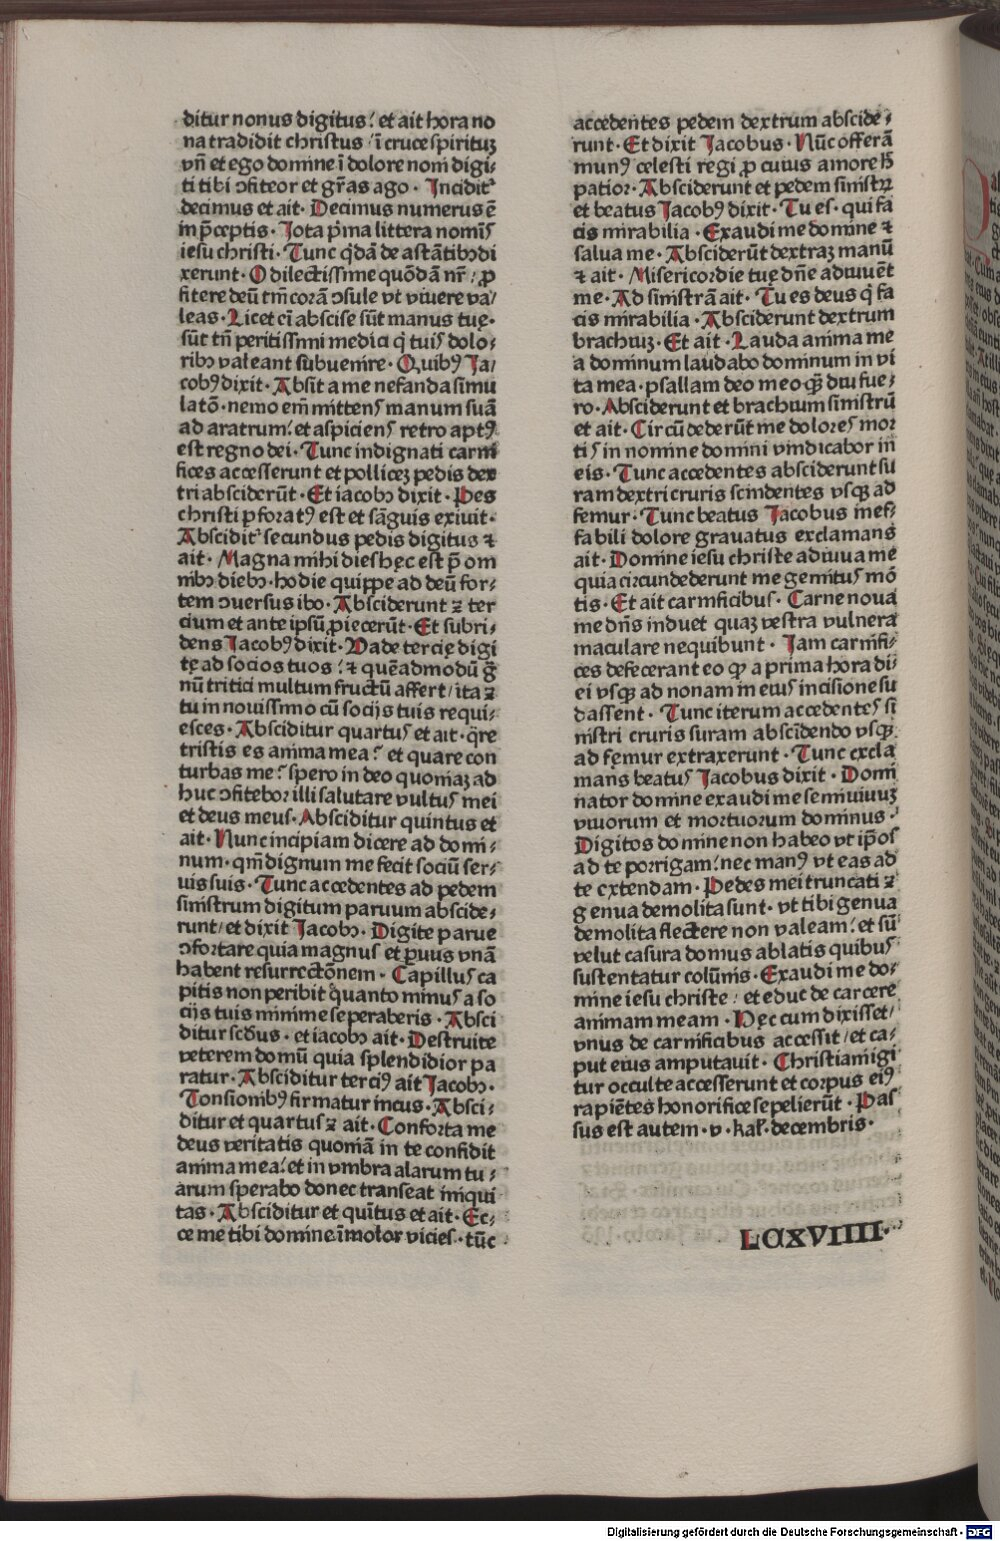 ditur nonus digitus⹎ et ait hora no
na tradidit christus / ī cruce spirituꝫ
vn̄ et ego domine ī dolore noni digi⸗
ti tibi ↄfiteor et gr̄as ago · Incidit᷑
decimus et ait · Decimus numerus ē
in p̄ceptis · Iota p̄ma littera nomīs
iesu christi · Tunc q̇dā de astātibↄ di
xerunt · O dilectissime quōdā nr̄ / ꝓ
fitere deū tm̄ corā ↄsule vt viuere va/
leas · Licet eī abscise sūt manus tuę ·
sūt tn̄ peritissimi medici q̇ tuis dolo⸗
ribↄ valeant subuenire · Quibꝰ Ja/
cobꝰ dixit · Absit a me nefanda simu
latō · nemo em̄ mittens manum suā
ad aratrum⹎ et aspiciens retro aptꝰ
est regno dei · Tunc indignati carni
fices accesserunt et polliceꝫ pedis dex
tri absciderūt · Et iacobↄ dixit · Pes
christi ꝑforatꝰ est et sāguis exiuit ·
Abscidit᷑ secundus pedis digitus ⁊
ait · Magna mihi dies hęc est p̄ om
nibↄ diebↄ · hodie quippe ad deū for⸗
tem ↄuersus ibo · Absciderunt ⁊ ter
cium et ante ipsū ꝓiecerūt · Et subri⸗
dens Jacobꝰ dixit · Vade tercię digi
tę ad socios tuos / ⁊ quēadmodū g̊
nū tritici multum fructū affert / ita ⁊
tu in nouissimo cū socijs tuis requi⸗
esces · Absciditur quartus et ait · q̊re
tristis es anima mea? et quare con
turbas me? spero in deo quoniaꝫ ad
huc ↄfitebor illi salutare vultus mei
et deus meus · Absciditur quintus et
ait · Nunc incipiam dicere ad domi⸗
num · qm̄ dignum me fecit sociū ser⸗
uis suis · Tunc accedentes ad pedem
sinistrum digitum paruum abscide⸗
runt / et dixit Jacobↄ · Digite parue
ↄfortare quia magnus et ꝑuus vnā
habent resurrectōnem · Capillus ca
pitis non peribit q̊nto minus a so
cijs tuis minime seperaberis · Absci
ditur scd̄us · et iacobↄ ait · Destruite
veterem domū quia splendidior pa
ratur · Absciditur terciꝰ ait Jacobↄ ·
Tonsionibꝰ firmatur incus · Absci⸗
ditur et quartus ⁊ ait · Conforta me
deus veritatis quoniā in te confidit
anima mea⹎ et in vmbra alarum tu⸗
arum sperabo donec transeat iniqui
tas · Absciditur et quītus et ait · Ec⸗
ce me tibi domine īmolor vicies · tūc
accedentes pedem dextrum abscide⸗
runt · Et dixit Jacobus · Nūc offerā
munꝰ celesti regi ꝓ cuius amore h̄
patior · Absciderunt et pedem sinistꝝ
et beatus Jacobꝰ dixit · Tu es · qui fa
cis mirabilia · Exaudi me domine ⁊
salua me · Absciderūt dextraꝫ manū
⁊ ait · Misericordie tuę dn̄e adiuuēt
me · Ad sinistrā ait · Tu es deus q̇ fa
cis mirabilia · Absciderunt dextrum
brachiuꝫ · Et ait · Lauda anima me
a dominum laudabo dominum in vi
ta mea · psallam deo meo qꝫ̄ diu fue⸗
ro · Absciderunt et brachium sinistrū
et ait · Circūdederūt me dolores mor
tis in nomine domini vindicabor in
eis · Tunc accedentes absciderunt su
ram dextri cruris scindentes vsqꝫ ad
femur · Tunc beatus Jacobus inef⸗
fabili dolore grauatus exclamans
ait · Domine iesu christe adiuua me
quia circundederunt me gemitus mō
tis · Et ait carnificibus · Carne noua
me dn̄s induet quaꝫ vestra vulnera
maculare nequibunt · Jam carnifi⸗
ces defecerant eo qꝫ a prima hora di⸗
ei vsqꝫ ad nonam in eius incisione su
dassent · Tunc iterum accedentes si
nistri cruris suram abscidendo vsqꝫ
ad femur extraxerunt · Tunc excla
mans beatus Jacobus dixit · Domi
nator domine exaudi me semiuiuuꝫ
viuorum et mortuorum dominus ·
Digitos domine non habeo vt ip̄os
ad te porrigam⹎ nec manꝰ vt eas ad
te extendam · Pedes mei truncati ⁊
genua demolita sunt · vt tibi genua
demolita flectere non valeam⹎ et sū
velut casura domus ablatis quibus
sustentatur colūnis · Exaudi me do⸗
mine iesu christe / et educ de carcere
animam meam · Hęc cum dixisset /
vnus de carnificibus accessit / et ca⸗
put eius amputauit · Christiani igi
tur occulte accesserunt et corpus eiꝰ
rapiētes honorifice sepelierūt · Pas
sus est autem · v · kal̄ · decembris ·
LXXVIIII ·
Digitalisierung gefördert durch die Deutsche Forschungsgemeinschaft · DFG